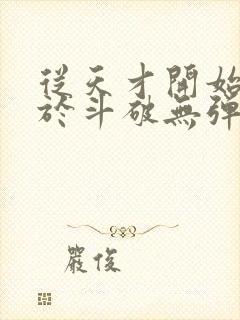 從天才開始
於斗破無彈
嚴俊